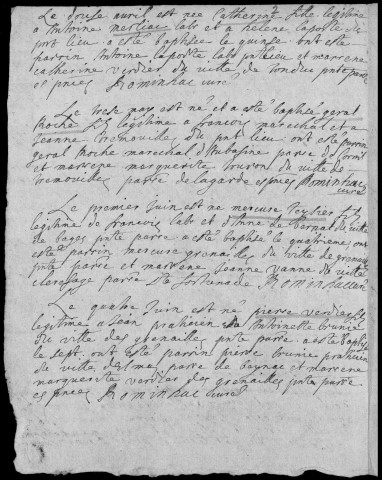 Le douse avril est nee Catherine fille legitime
a Antoine merliac labr et a helene laposte du
pnt lieu a esté baptisée le quinse ont esté
parrin Antoine laposte labr pnt lieu et marrene
catherine verdier du village de
es pnces Rominhac curé
Le trese may est né et a esté baptisé geral
Roche fils legitime a francois marechal et a
Jeanne tremouille du pnt lieu ont esté parrin
geral Roche marechal d'Aubasine parse de Cornil
et marrene marguerite du ville de
tremouille parse de lagarde es pnces Rominhac
curé
Le premier Juin est né mercure teyssier fils
legitime de francois labr et d'Anne le vernat du ville
de bages pnte parse a esté baptisé le quatrieme ont
esté parrin mercure grenailles du ville de grenailles
pnte parse et marrene Jeanne vanne du ville
parse Ste fortunade Rominhac curé
Le quatre Juin est né pierre verdier fils
legitime a Jean praticien et Antoinette brunie
du ville des grenailles pnte parse a esté baptisé
le sept, ont esté parrin pierre brunie praticien
du ville parse de beynac et marrene
marguerite verdier des grenailles pnte parse
es pnces Rominhac curé